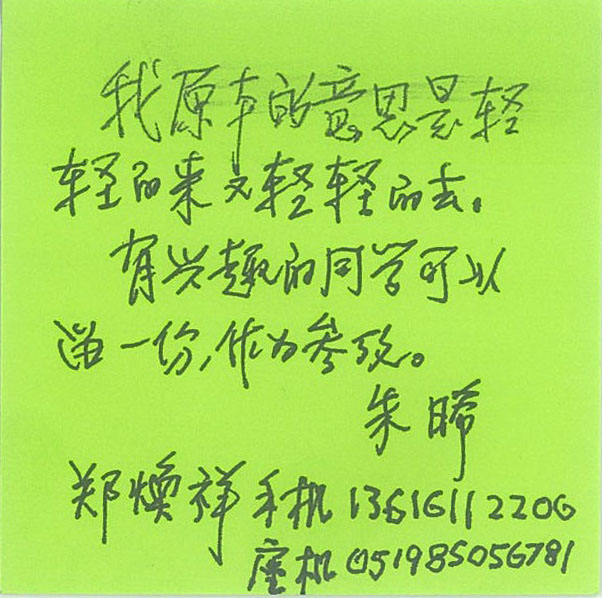 我原本的意思是轻
轻的来又轻轻的去。
有兴趣的同学可以
留一份,作为参考。
朱晞
郑焕祥手机13616112206
座机051985056781